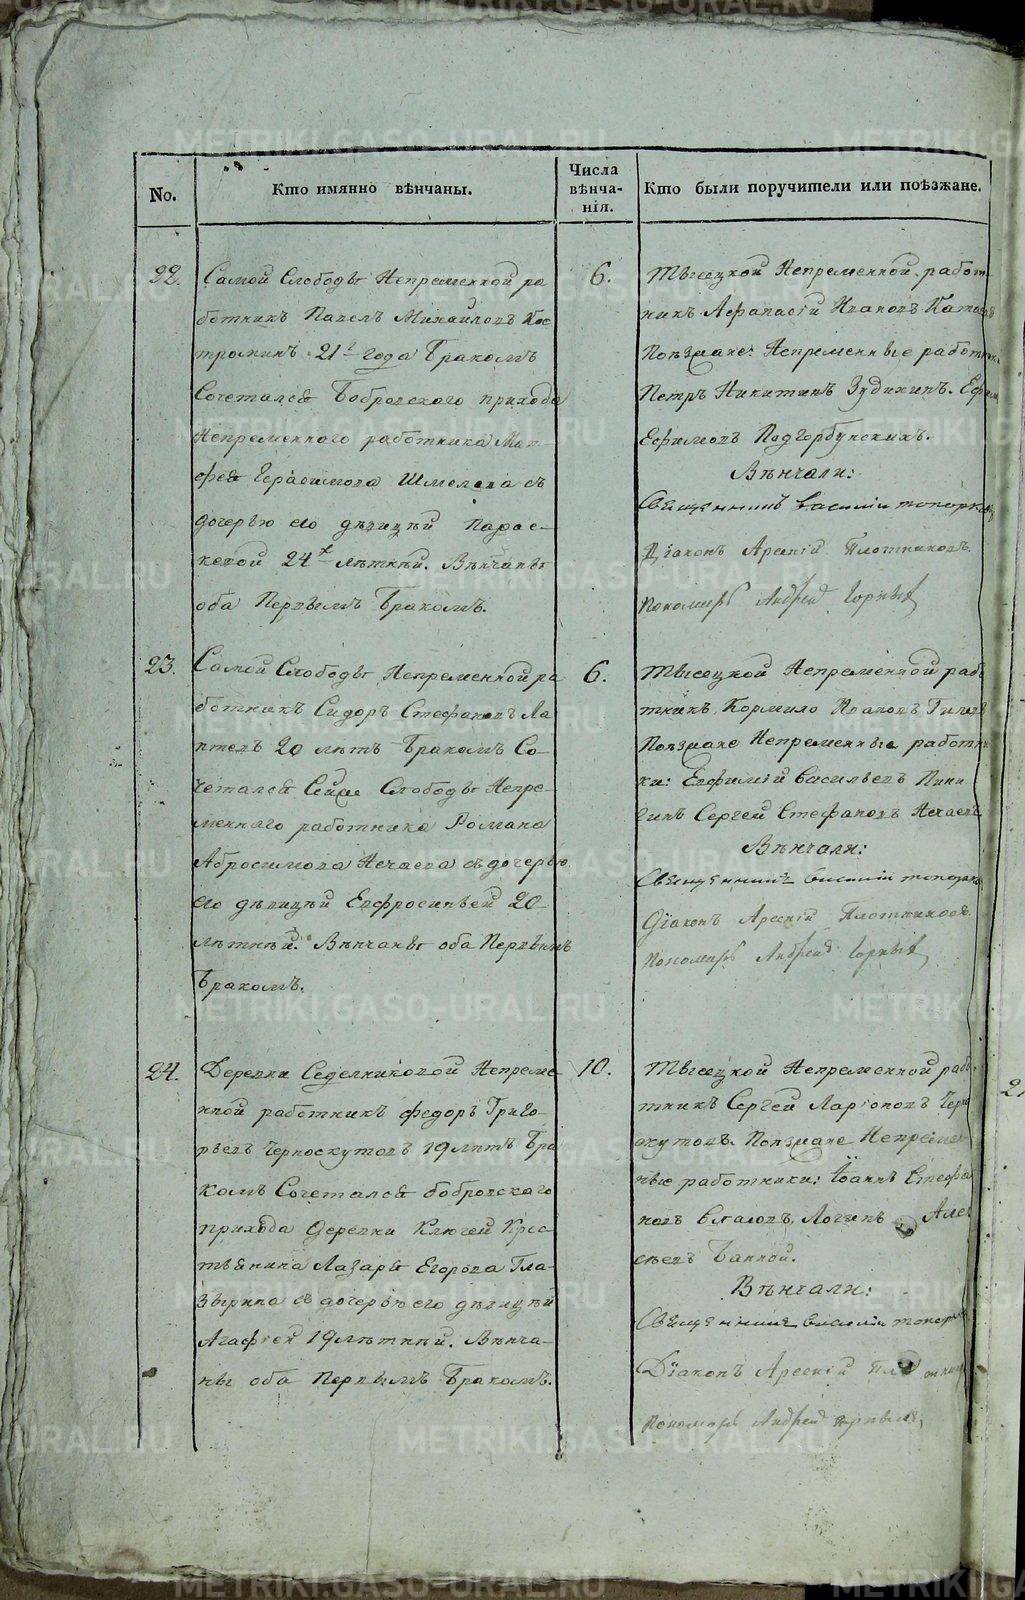 No.
Кто имянно вѣнчаны.
Числа
вѣнча-
нія.
Кто были поручители или поѣзжане.
22.
Самой Слободы Непременной ра
ботникъ Павелъ Михайловъ Кос
троминъ 21го года Бракомъ
Сочетался Бобровского прихода
Непременного работника Мат-
фея Герасимова Шмелева съ
дочерью его дѣвицѣй Парас-
кевой 24х лѣтнѣй. Вѣнчаны
оба Первымъ Бракомъ.
6.
Тысецкой Непременной работ
никъ Афанасій Ивановъ
Поѣзжане: Непременные работник
Петръ Никитинъ Зудихинъ. Ефим
Ефимовъ Подгорбунскихъ.
Вѣнчали:
Священникъ Василій Топорков
Діаконъ Арсеній Плотниковъ
Пономарь Андрей Горныхъ
23.
Самой Слободы Непременной ра
ботникъ Сидоръ Стефановъ Ла
птевъ 20 лѣтъ Бракомъ Со-
четался Сей же Слободы Непре-
меннаго работника Романа
Абросимова Нечаева съ дочерью
его дѣвицѣй Евфросиньей 20-
лѣтнѣй. Вѣнчаны оба Первымъ
Бракомъ.
6.
Тысецкой Непременной рабо
тникъ Кормило Ивановъ
Поѣзжане Непременные работни
ки: Евфимій Васильевъ Пини
гинъ Сергей Стефановъ Нечаевъ
Вѣнчали:
Священникъ Василій Топорков
Діаконъ Арсеній Плотниковъ.
Пономарь Андрей Горныхъ
24.
Деревни Седелниковой Непреме-
нной работникъ Федоръ Григо-
рьевъ Черноскутовъ 19 лѣтъ Бра
комъ Сочетался бобровскаго
прихода Деревни Ключей Крес-
тьянина Лазаря Егорова Гла-
зырина съ дочерью его дѣвицѣй
Агафіей 19 лѣтнѣй. Вѣнча-
ны оба Первымъ Бракомъ.
10.
Тысецкой Непременной рабо
тникъ Сергей Ларіоновъ Черно
скутовъ. Поѣзжане Непремен-
ные работники: Іоаннъ Стефа
новъ Логинъ Алек
сѣевъ
Вѣнчали:
Священникъ Василій Топорков
Діаконъ Арсеній Плотник
Пономарь Андрей Горныхъ